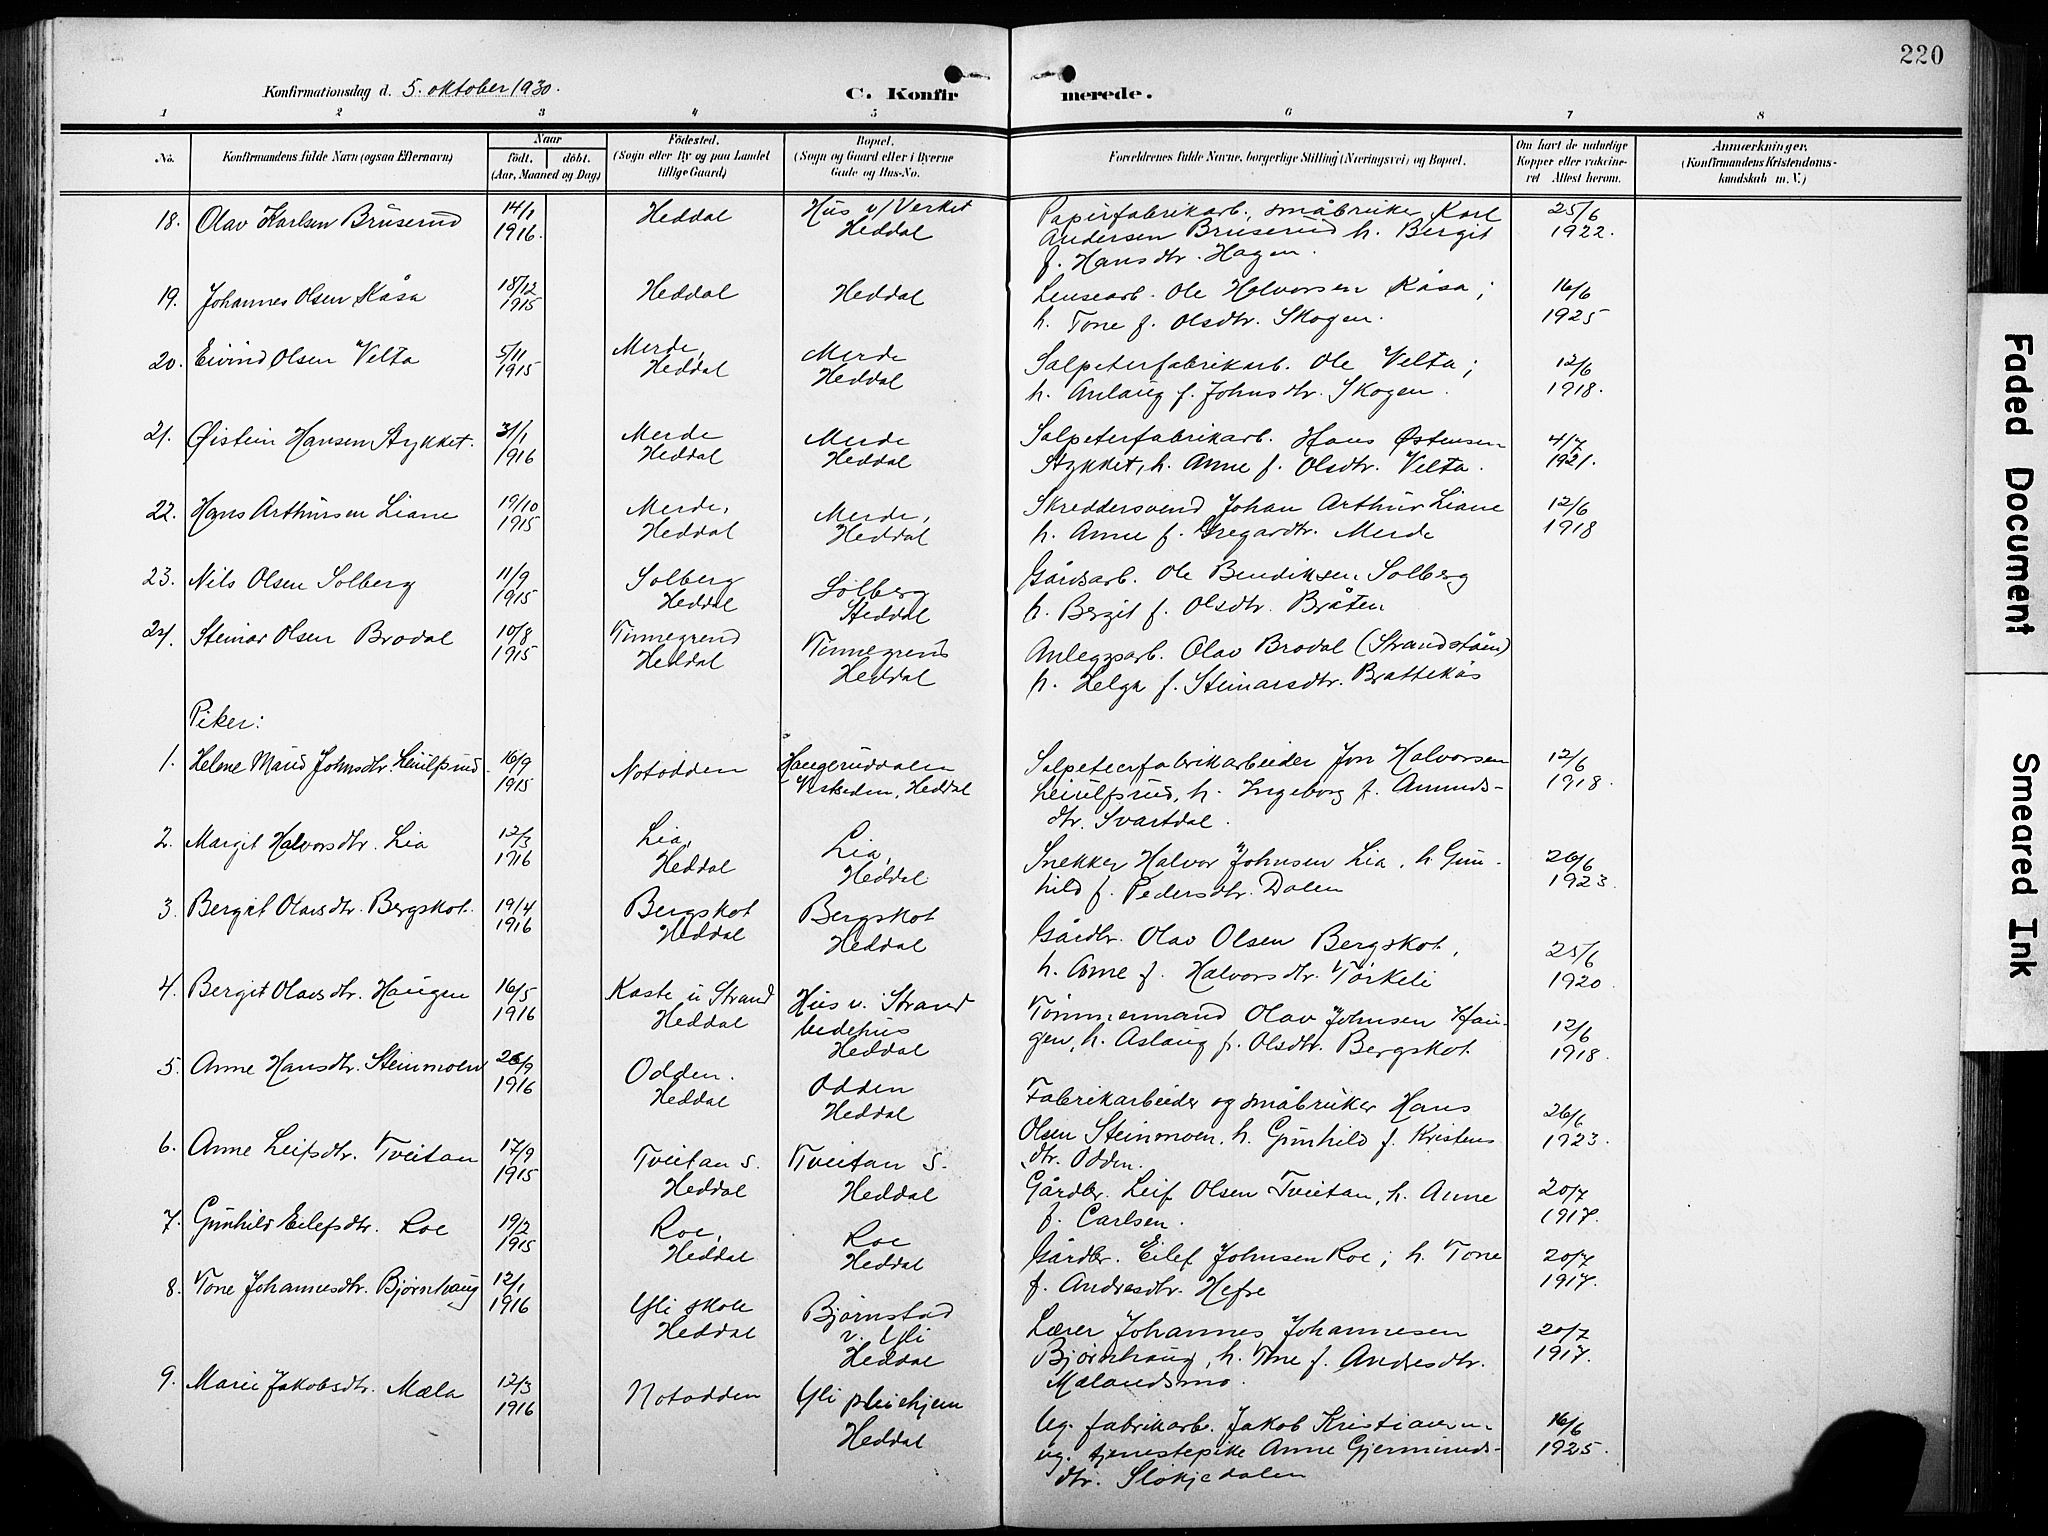 220
Konfirmationsdag d. 5. oktober 1930.
C. Konfirmerede.
1 2 3 4 5 6 7 8
No.
Konfirmandens fulde Navn (ogsaa Efternavn)
Naar
födt. döbt.
(Aar, Maaned og Dag)
Födested.
(Sogn eller By og paa Landet
tillige Gaard)
Bopæl.
(Sogn og Gaard eller i Byerne
Gade og Hus-No.
Forældrenes fulde Navne, borgerlige Stilling (Næringsvei) og Bopæl.
Om havt de naturlige
Kopper eller vakcine-
ret Attest herom.
Anmærkninger.
(Konfirmandens Kristendoms-
kundskab m. V.)
18. Olav Karlsen Bruserud 14/1 1916. Heddal Hus v/ Verket Heddal
Papirfabrikarb., småbruker Karl
Andersen Bruserud h. Bergit
f. Hansdtr. Hagen.
25/6 1922.
19. Johannes Olsen Kåsa 18/12 1915 Heddal Heddal
Lensearb. Ole Halvorsen Kåsa;
h. Tone f. Olsdtr. Skogen.
16/6 1925
20. Eivind Olsen Velta 5/11 1915 Merde, Heddal Merde Heddal
Salpeterfabrikarb. Ole Velta;
h. Anlaug f. Johnsdtr. Skogen.
12/6 1918.
21. Øistein Hansen Stykket. 31/1 1916 Merde Heddal Merde Heddal
Salpeterfabrikarb. Hans Østensen
Stykket, h. Anne f. Olsdtr. Velta.
4/7 1921.
22. Hans Arthursen Liane 19/10 1915 Merde, Heddal Merde, Heddal
Skreddersvend Johan Arthur Liane
h. Anne f. Gregardtr. Merde
12/6 1918
23. Nils Olsen Solberg 11/9 1915 Solberg Heddal Solberg Heddal
Gårdsarb. Ole Bendiksen Solberg
h. Bergit f. Olsdtr. Bråten
24. Steinar Olsen Brodal 10/8 1915 Tinnegrend Heddal Tinnegrend Heddal
Anlegsarb. Olav Brodal (Strandståen)
h. Helga f. Steinarsdtr. Brattekås
Piker:
1. Helene Maud Johnsdtr. Leiulfsrud 16/9 1915 Notodden Haugeruddalen Heddal
Salpeterfabrikarbeider Jon Halvorsen
Leiulfsrud, h. Ingeborg f. Amunds-
dtr. Svartdal.
12/6 1918.
2. Margit Halvorsdtr. Lia 12/3 1916 Lia, Heddal Lia, Heddal
Snekker Halvor Johnsen Lia, h Gun-
hild f. Pedersdtr. Dalen
26/6 1923.
3. Bergit Olavsdtr. Bergskot. 19/4 1916 Bergskot Heddal Bergskot Heddal
Gårdbr. Olav Olsen Bergskot,
h. Anne f. Halvorsdtr. Torkeli
25/6 1920.
4. Bergit Olavsdtr. Haugen 16/5 1916 Kaste u Strand Heddal Hus v. Strand bedehus Heddal
Tømmermand Olav Johnsen Hau-
gen, h. Aslaug f. Olsdtr. Bergskot.
12/6 1918.
5. Anne Hansdtr. Steinmoen 26/9 1916 Odden. Heddal Odden Heddal
Fabrikarbeider og småbruker Hans
Olsen Steinmoen, h. Gunhild f. Kristens
dtr. Odden.
26/6 1923.
6. Anne Leifsdtr. Tveitan 17/9 1915 Tveitan s. Heddal Tveitan s. Heddal
Gårdbr. Leif Olsen Tveitan, h. Anne
f. Carlsen.
20/7 1917.
7. Gunhild Eilefsdtr. Roe 19/2 1915 Roe, Heddal Roe Heddal
Gårdbr. Eilef Johnsen Roe; h. Tone
f. Andresdtr. Hefre
20/7 1917.
8. Tone Johannesdtr. Bjørnhaug 12/1 1916 Yli skole Heddal Bjørnstad v. Yli Heddal
Lærer Johannes Johannesen
Bjørnhaug, h. Tone f. Andresdtr.
Mælandsmo.
20/7 1917.
9. Marie Jakobsdtr. Mæla 12/3 1916 Notodden Yli pleiehjem Heddal
Ug. fabrikarb. Jakob Kristiansen
ug. tjenestepike Anne Gjermunds-
dtr. Slokjedalen
16/6 1925.
Faded Document
Smeared Ink